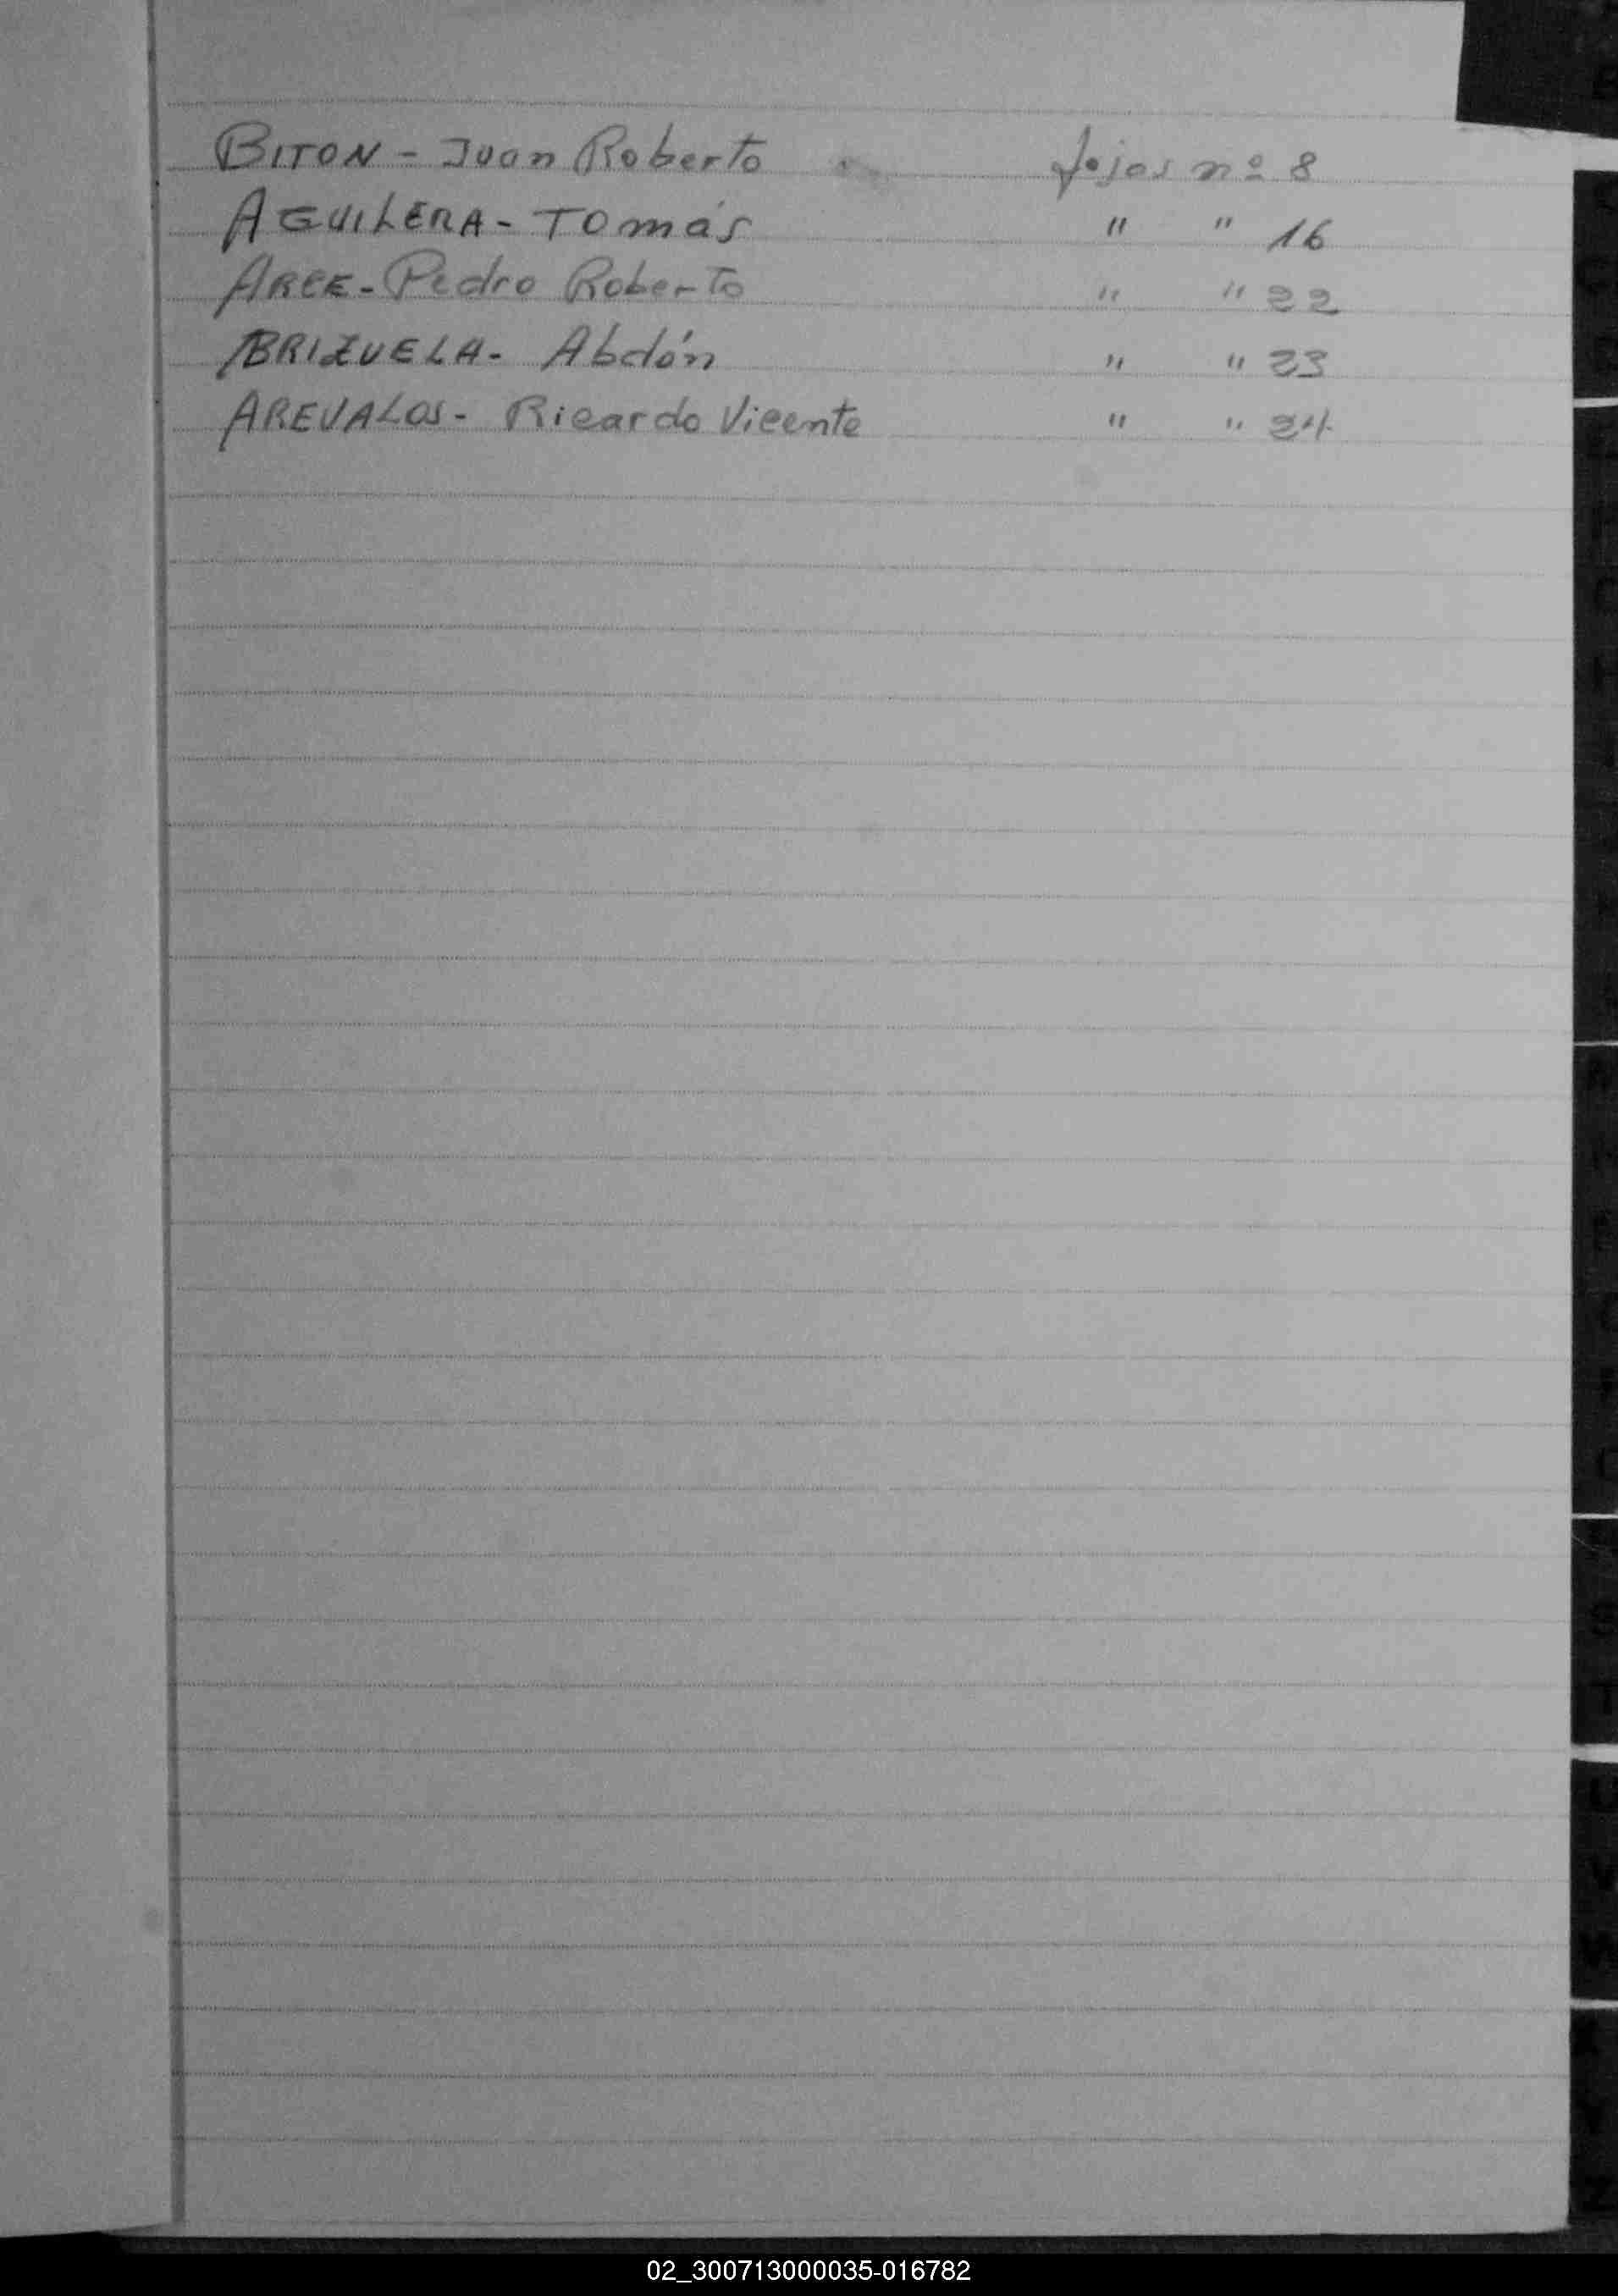 BITON - Juan Roberto fojas nº 8
AGUILERA - Tomás " " 16
ARCE - Pedro Roberto " " 22
BRIZUELA - Abdón " " 23
AREVALOS - Ricardo Vicente " " 24
02_300713000035-016782